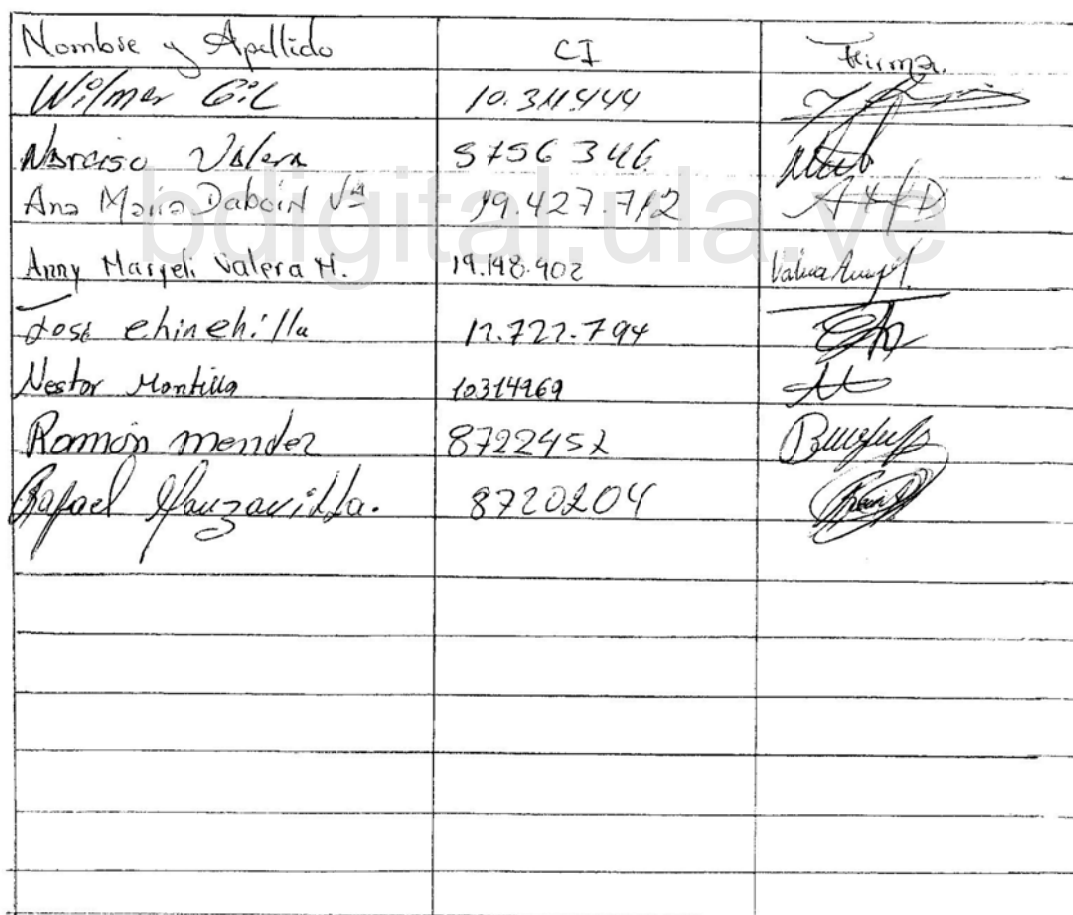 Nombre y Apellido CI Firma.
Wilmer Gil 10.311.444
Narciso Valera 5756346
Ana Maria Daboin Va 19.427.712
Anny Maryeli Valera M. 19.148.902
José Chinchilla 12.722.794
Nestor Montilla 10314969
Ramón mendez 8722452
Rafael Manzanilla. 8720204
bdigital.ula.ve